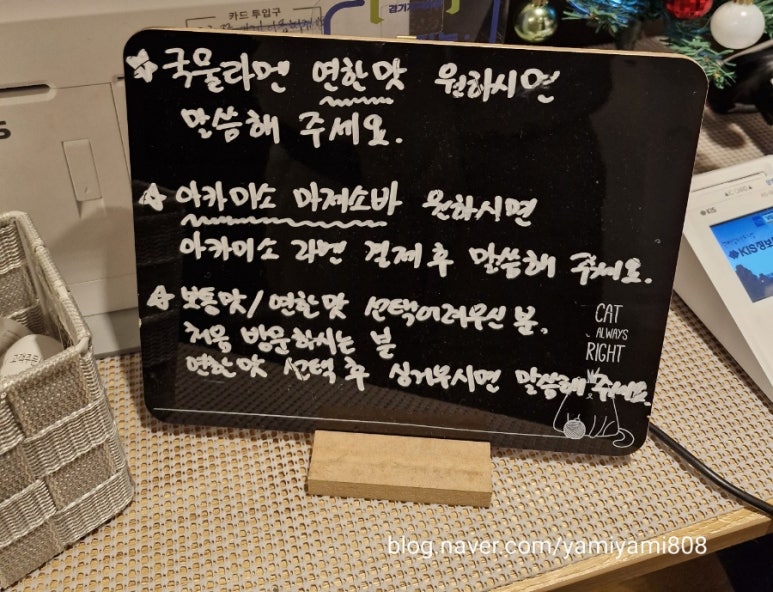 카드 투입구
☆ 국물라면 연한맛 원하시면
말씀해 주세요.
☆ 아카미소 마제소바 원하시면
아카미소 라면 결제 후 말씀해 주세요.
☆ 보통맛/연한맛 선택어려우신 분,
처음 방문하시는 분
연한맛 선택 후 싱거우시면 말씀해 주세요.
CAT
ALWAYS
RIGHT
KIS
blog.naver.com/yamiyami808